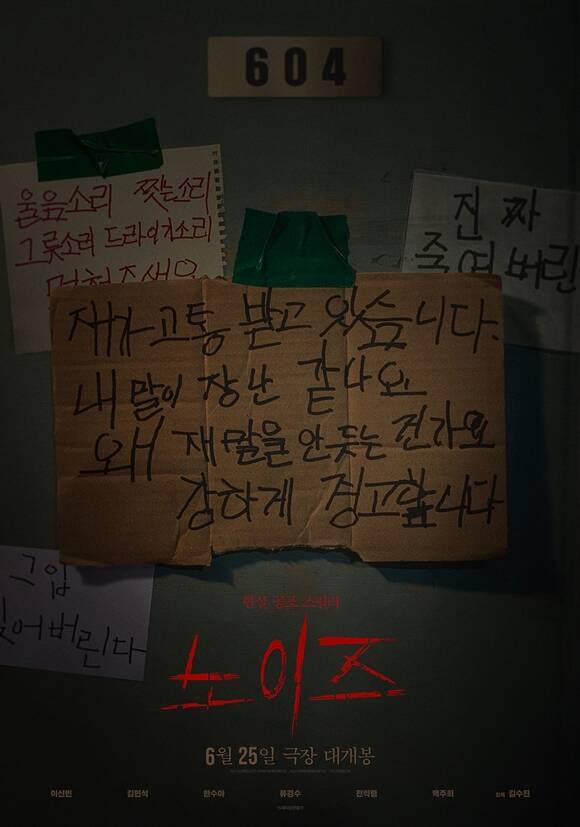 604
울음소리 찢는소리
그릇소리 드라이기소리
멈춰주세요
진짜
죽여버린
재가 고통 받고 있습니다.
내 말이 장난 같나요
왜 재 말을 안 듯는 건가요
강하게 경고합니다
그입
찢어버린다
현실 공포 스릴러
노이즈
6월 25일 극장 대개봉
이선빈 김민석 한수아 류경수 전익령 백주희 감독 김수진